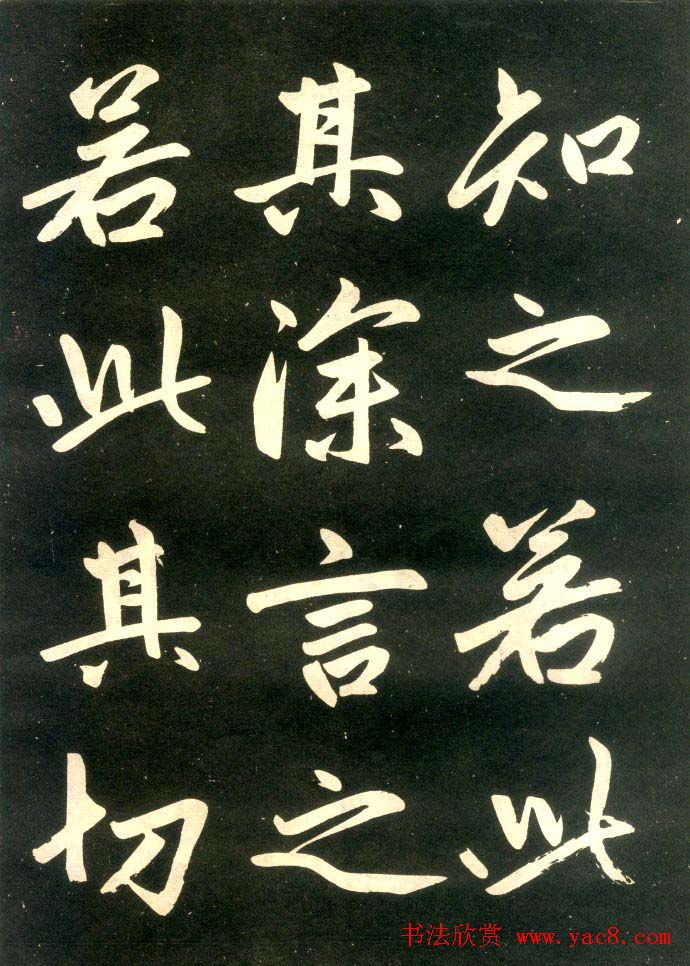 知之若此
其深言之
若此其切
书法欣赏 www.yac8.com